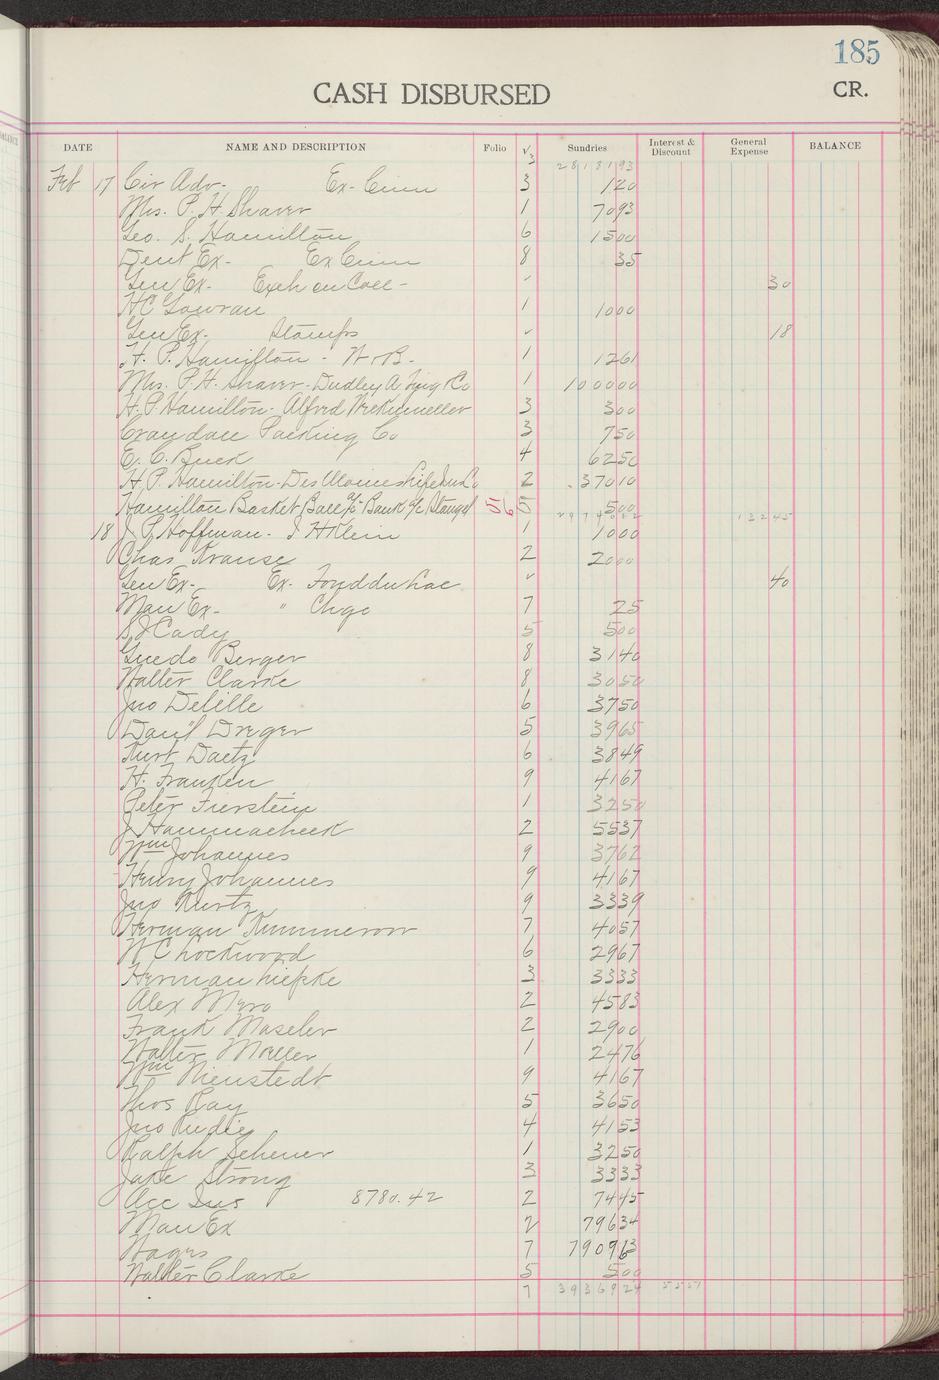 185
CASH DISBURSED CR.
DATE NAME AND DESCRIPTION Folio √ Sundries Interest & Discount General Expense BALANCE
3 2818193
Feb 17 Cir Adv- Ex-Cinn 3 120
Mrs. P. H. Shaver 1 7093
Geo. S. Hamilton 6 1500
Dent Ex- Ex Cinn 8 35
Gen Ex- Exch on Coll- √ 30
HC Gowran 1 1000
Gen Ex- Stamps √ 18
H. P. Hamilton - W-B- 1 1261
Mrs. P. H. Shaver - Dudley A Co 1 100000
H. P. Hamilton - Alfred 3 300
Crandall Packing Co 3 750
E. C. Buck 4 6250
H. P. Hamilton - Des Moines Life Ins Co 2 37010
Hamilton Basket Ball a/c - Bank a/c 56 5 500
2974022 13245
18 J. P. Hoffman - J H Klein 1 1000
Chas Krause 2 2000
Gen Ex- Ex- Fond du Lac √ 40
Man Ex- " Chgo 7 25
S J Cady 5 500
Guedo Berger 8 3140
Walter Clarke 8 3050
Jno Delille 6 3750
Dan'l Dreger 5 3965
Kurt Daetz 6 3849
H. Franken 9 4167
Peter Fierstein 1 3250
J Hammacheck 2 5537
Wm Johannes 9 3762
Henry Johannes 9 4167
Jno Kurtz 9 3339
Herman Kummerow 7 4057
W C Lockwood 6 2967
Herman Liepke 3 3333
Alex Mero 2 4583
Frank Maseler 2 2900
Walter Moeller 1 2476
Wm Nienstedt 9 4167
Thos Ray 5 3650
Jno Rudie 4 4153
Ralph Scheuer 1 3250
Jake Strong 3 3333
Acc Ins 8780.42 2 7445
Man Ex 2 79634
Wages 7 790963
Walter Clarke 5 500
7 3936924 5551